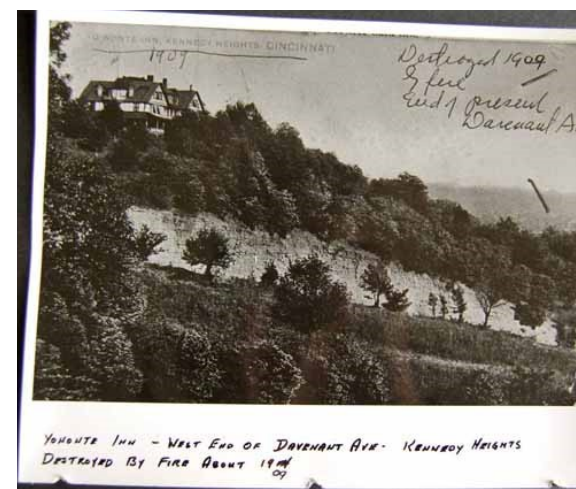 YONONTE INN, KENNEDY HEIGHTS, CINCINNATI
1909
Destroyed 1909
By fire
End of present
Davenant A
YONONTE INN - WEST END OF DAVENANT AVE- KENNEDY HEIGHTS
DESTROYED BY FIRE ABOUT 19
09